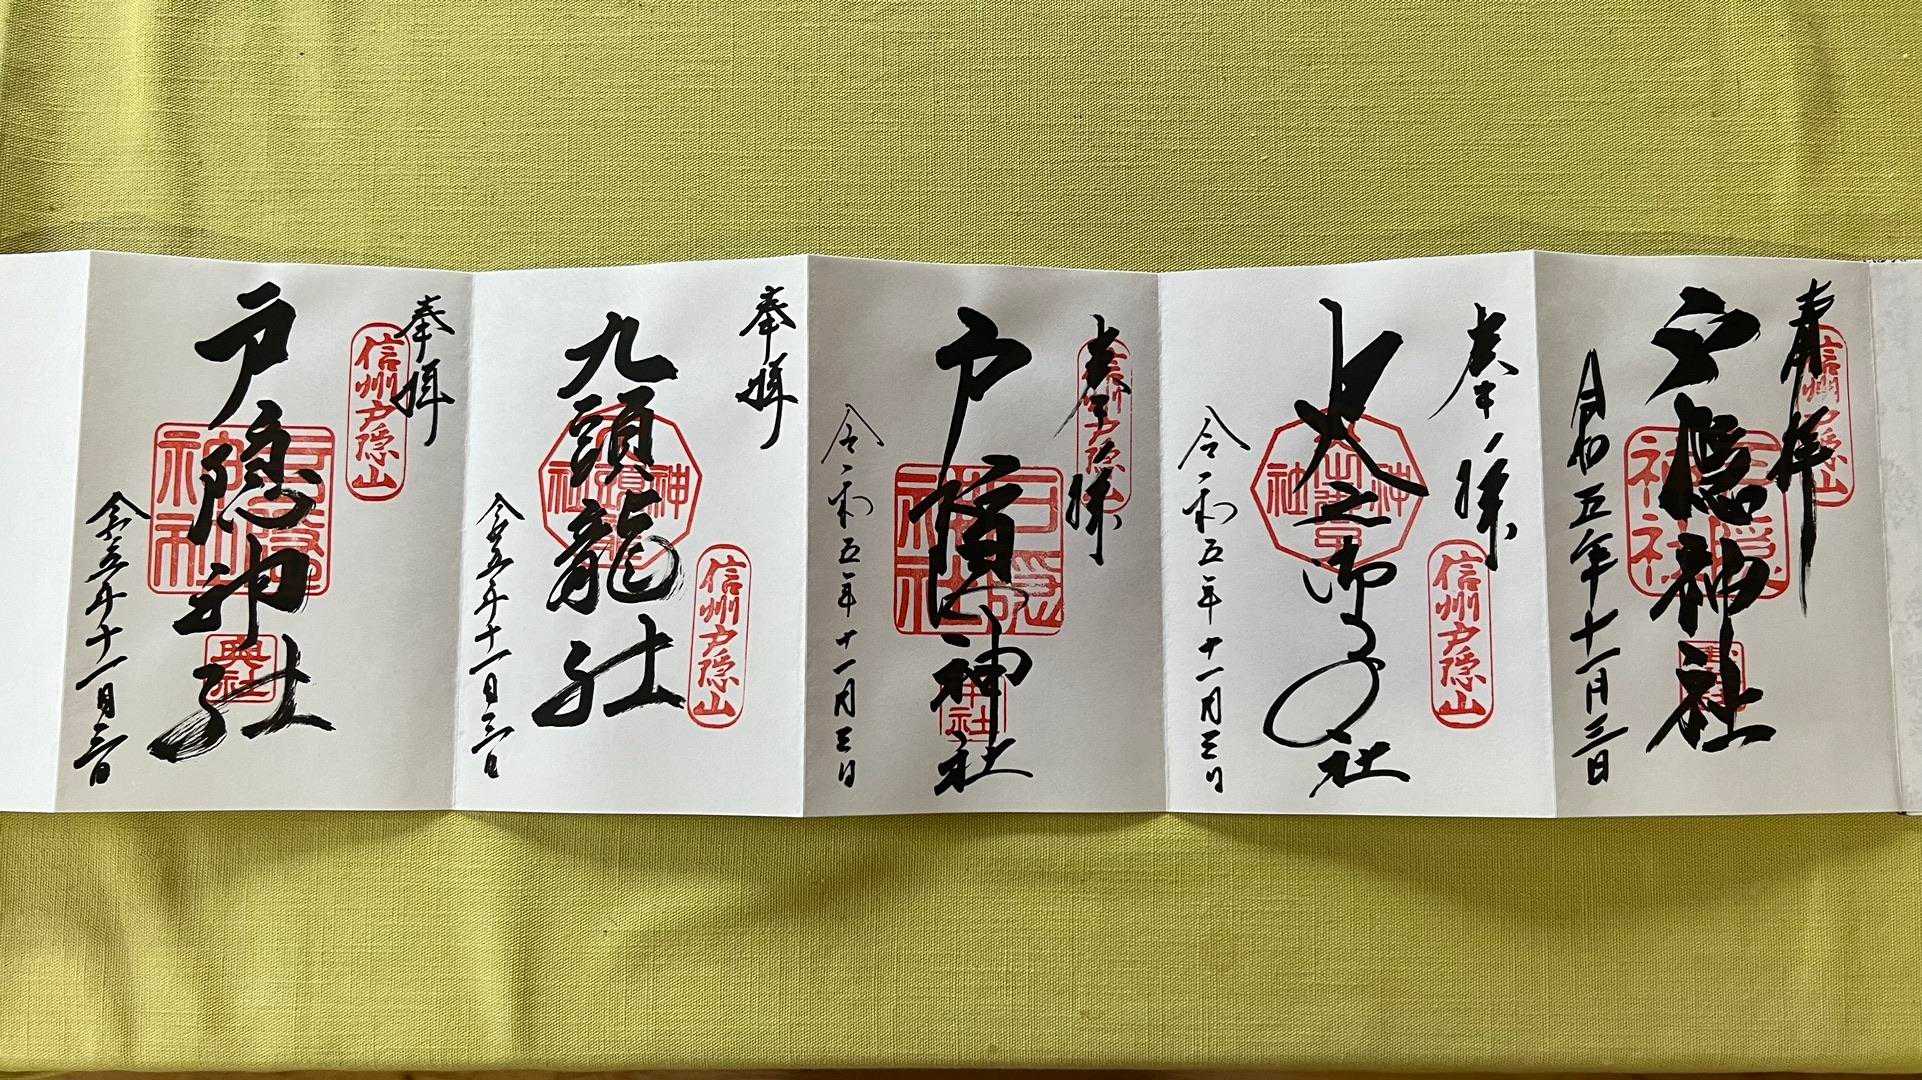 奉拝
信州戸隠山
戸隠神社
戸隠神社
令和五年十一月三日
奉拝
信州戸隠山
火之御子社
令和五年十一月三日
奉拝
信州戸隠山
戸隠神社
戸隠神社
中社
令和五年十一月三日
奉拝
信州戸隠山
九頭龍社
令和五年十一月三日
奉拝
信州戸隠山
戸隠神社
戸隠神社
奥社
令和五年十一月三日